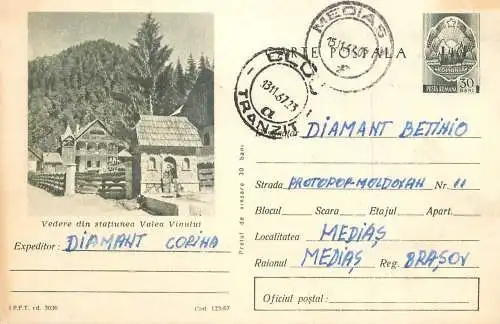 MEDIAS
15.11.67
CARTE POSTALA
POSTA ROMANA
30
BANI
CLUJ
13.11.67.23
a
TRANZIT
DIAMANT BETINIO
Strada PROTOPOP-MOLDOVAN Nr. 11
Blocul Scara Etajul Apart.
Localitatea MEDIAȘ
Raionul MEDIAȘ Reg. BRAȘOV
Oficiul poștal:
Prețul de vînzare 30 bani
Vedere din stațiunea Valea Vinului
Expeditor: DIAMANT CORINA
I.P.F.T. cd. 3036
Cod 123/67